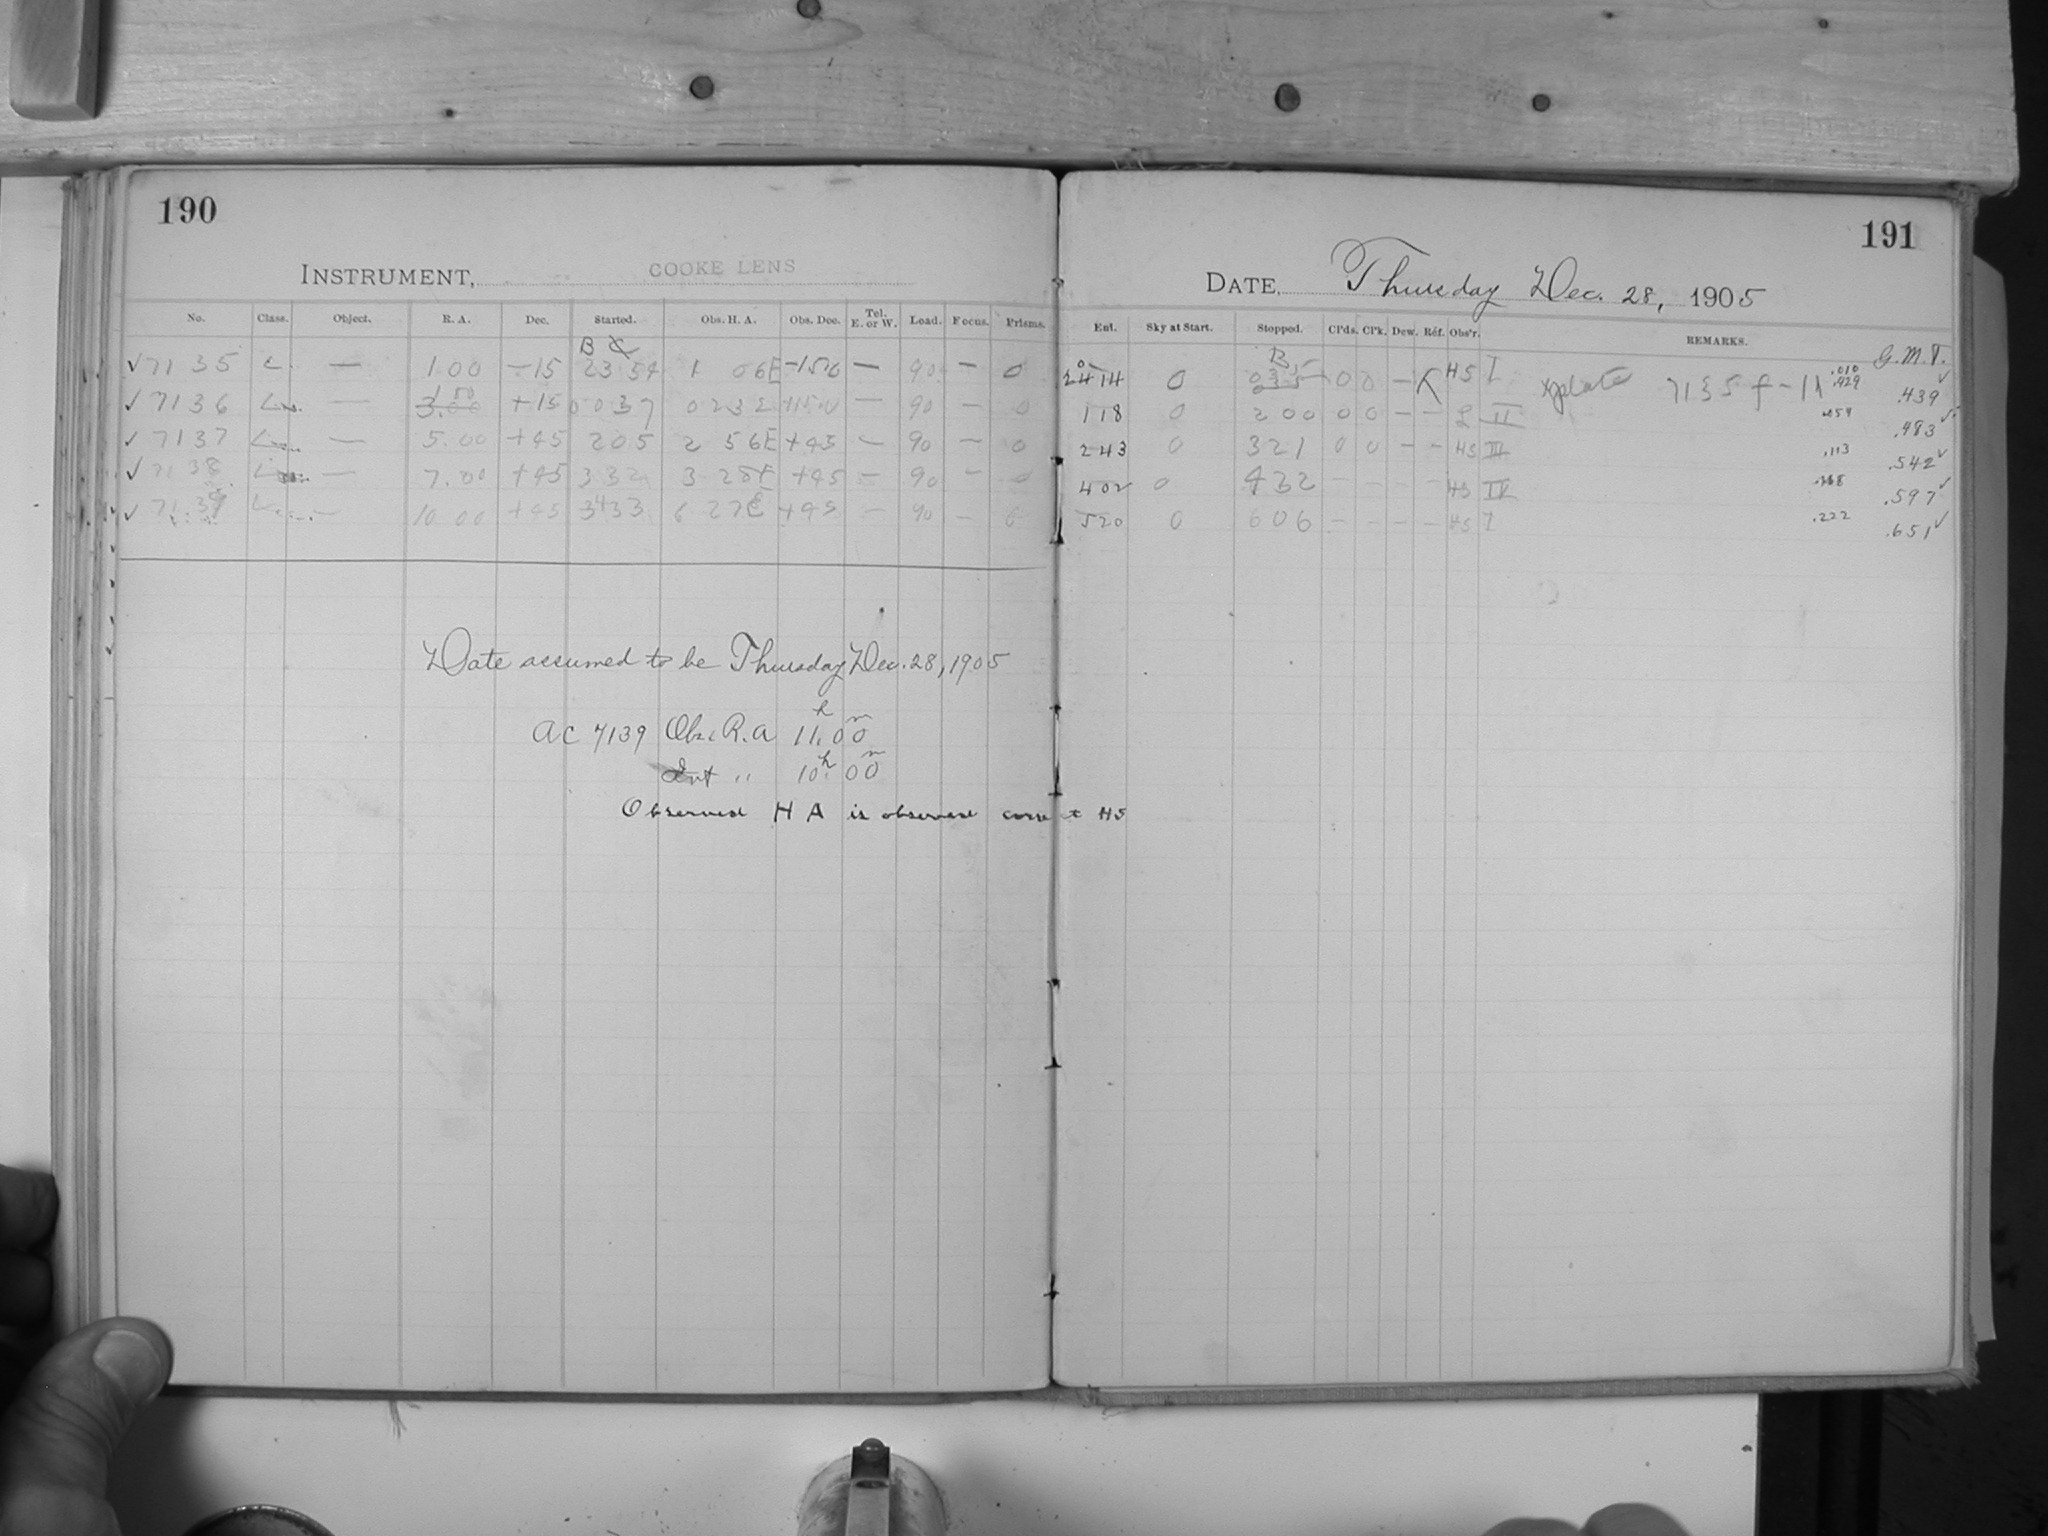 190
INSTRUMENT, COOKE LENS
No. Class. Object. R. A. Dec. Started. Obs. H. A. Obs. Dec. Tel. E. or W. Lead. Focus. Prisms.
B
✓ 7135 — 1.00 −15 23 54 1 06E — 90 — 0
1.00
✓ 7136 — 3.00 +15 0 037 — 90 — 0
✓ 7137 — 5.00 +45 205 2 56E +45 — 90 — 0
✓ 7138 — 7.00 +45 332 +45 — 90 — 0
✓ 7139 — 10.00 +45 6 27E +45 — 90 —
Date assumed to be Thursday Dec. 28, 1905
AC 7139 Obs. R.A 11h.00m
Ent " 10h.00m
Observed H A is observed correct HS
191
DATE, Thursday Dec. 28, 1905
Ent. Sky at Start. Stopped. Cl'ds. Cl'k. Dew. Ref. Obs'r. REMARKS.
G.M.T.
B
0 0 0 — HS I 7135 f-11 .010 .929 .439 ✓
118 0 200 0 0 — — II .059 .483 ✓
243 0 321 0 0 — — HS III .113 .542 ✓
402 0 432 — — — — HS IV .168 .597 ✓
520 0 606 — — — — HS I .222 .651 ✓